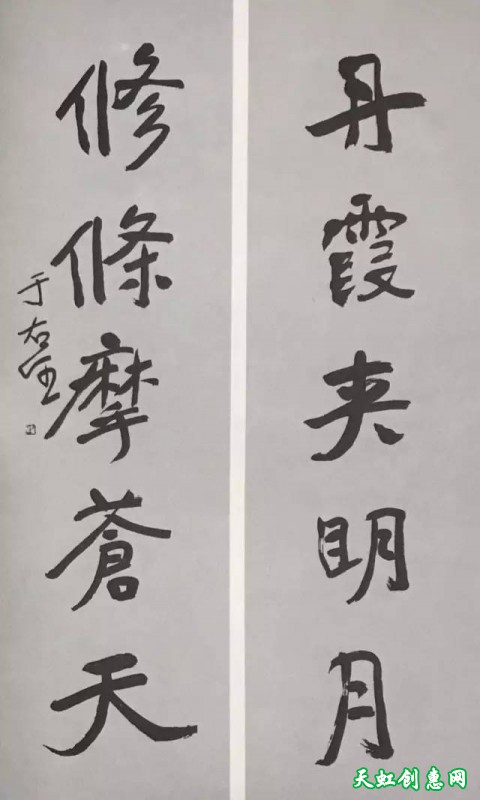 丹霞夹明月
修條摩蒼天
于右任
天虹创惠网